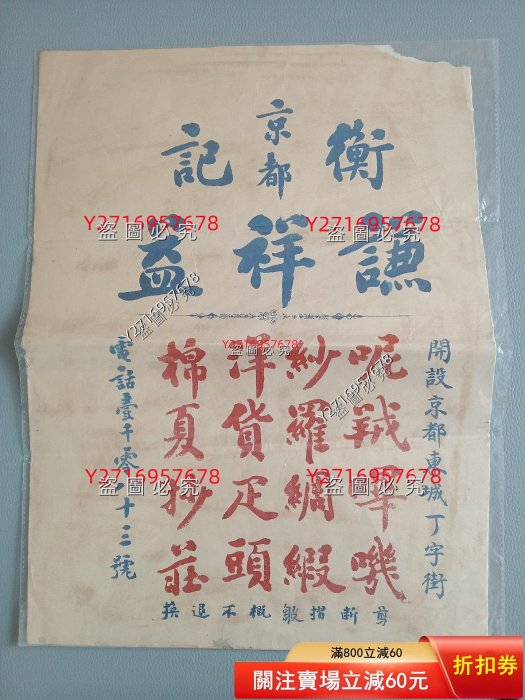 京都
衡記
謙祥益
開設京都東城丁字街
呢羢嗶嘰
紗羅綢緞
洋貨疋頭
棉夏抄莊
電話壹千零十三號
剪斷摺皺概不退換
Y2716957678
盜圖必究
Y2716957678
盜圖必究
Y2716957678
盜圖必究
Y2716957678
盜圖必究
Y2716957678
盜圖必究
Y2716957678
盜圖必究
Y2716957678
盜圖必究
滿800立減60
關注賣場立減60元
折扣券